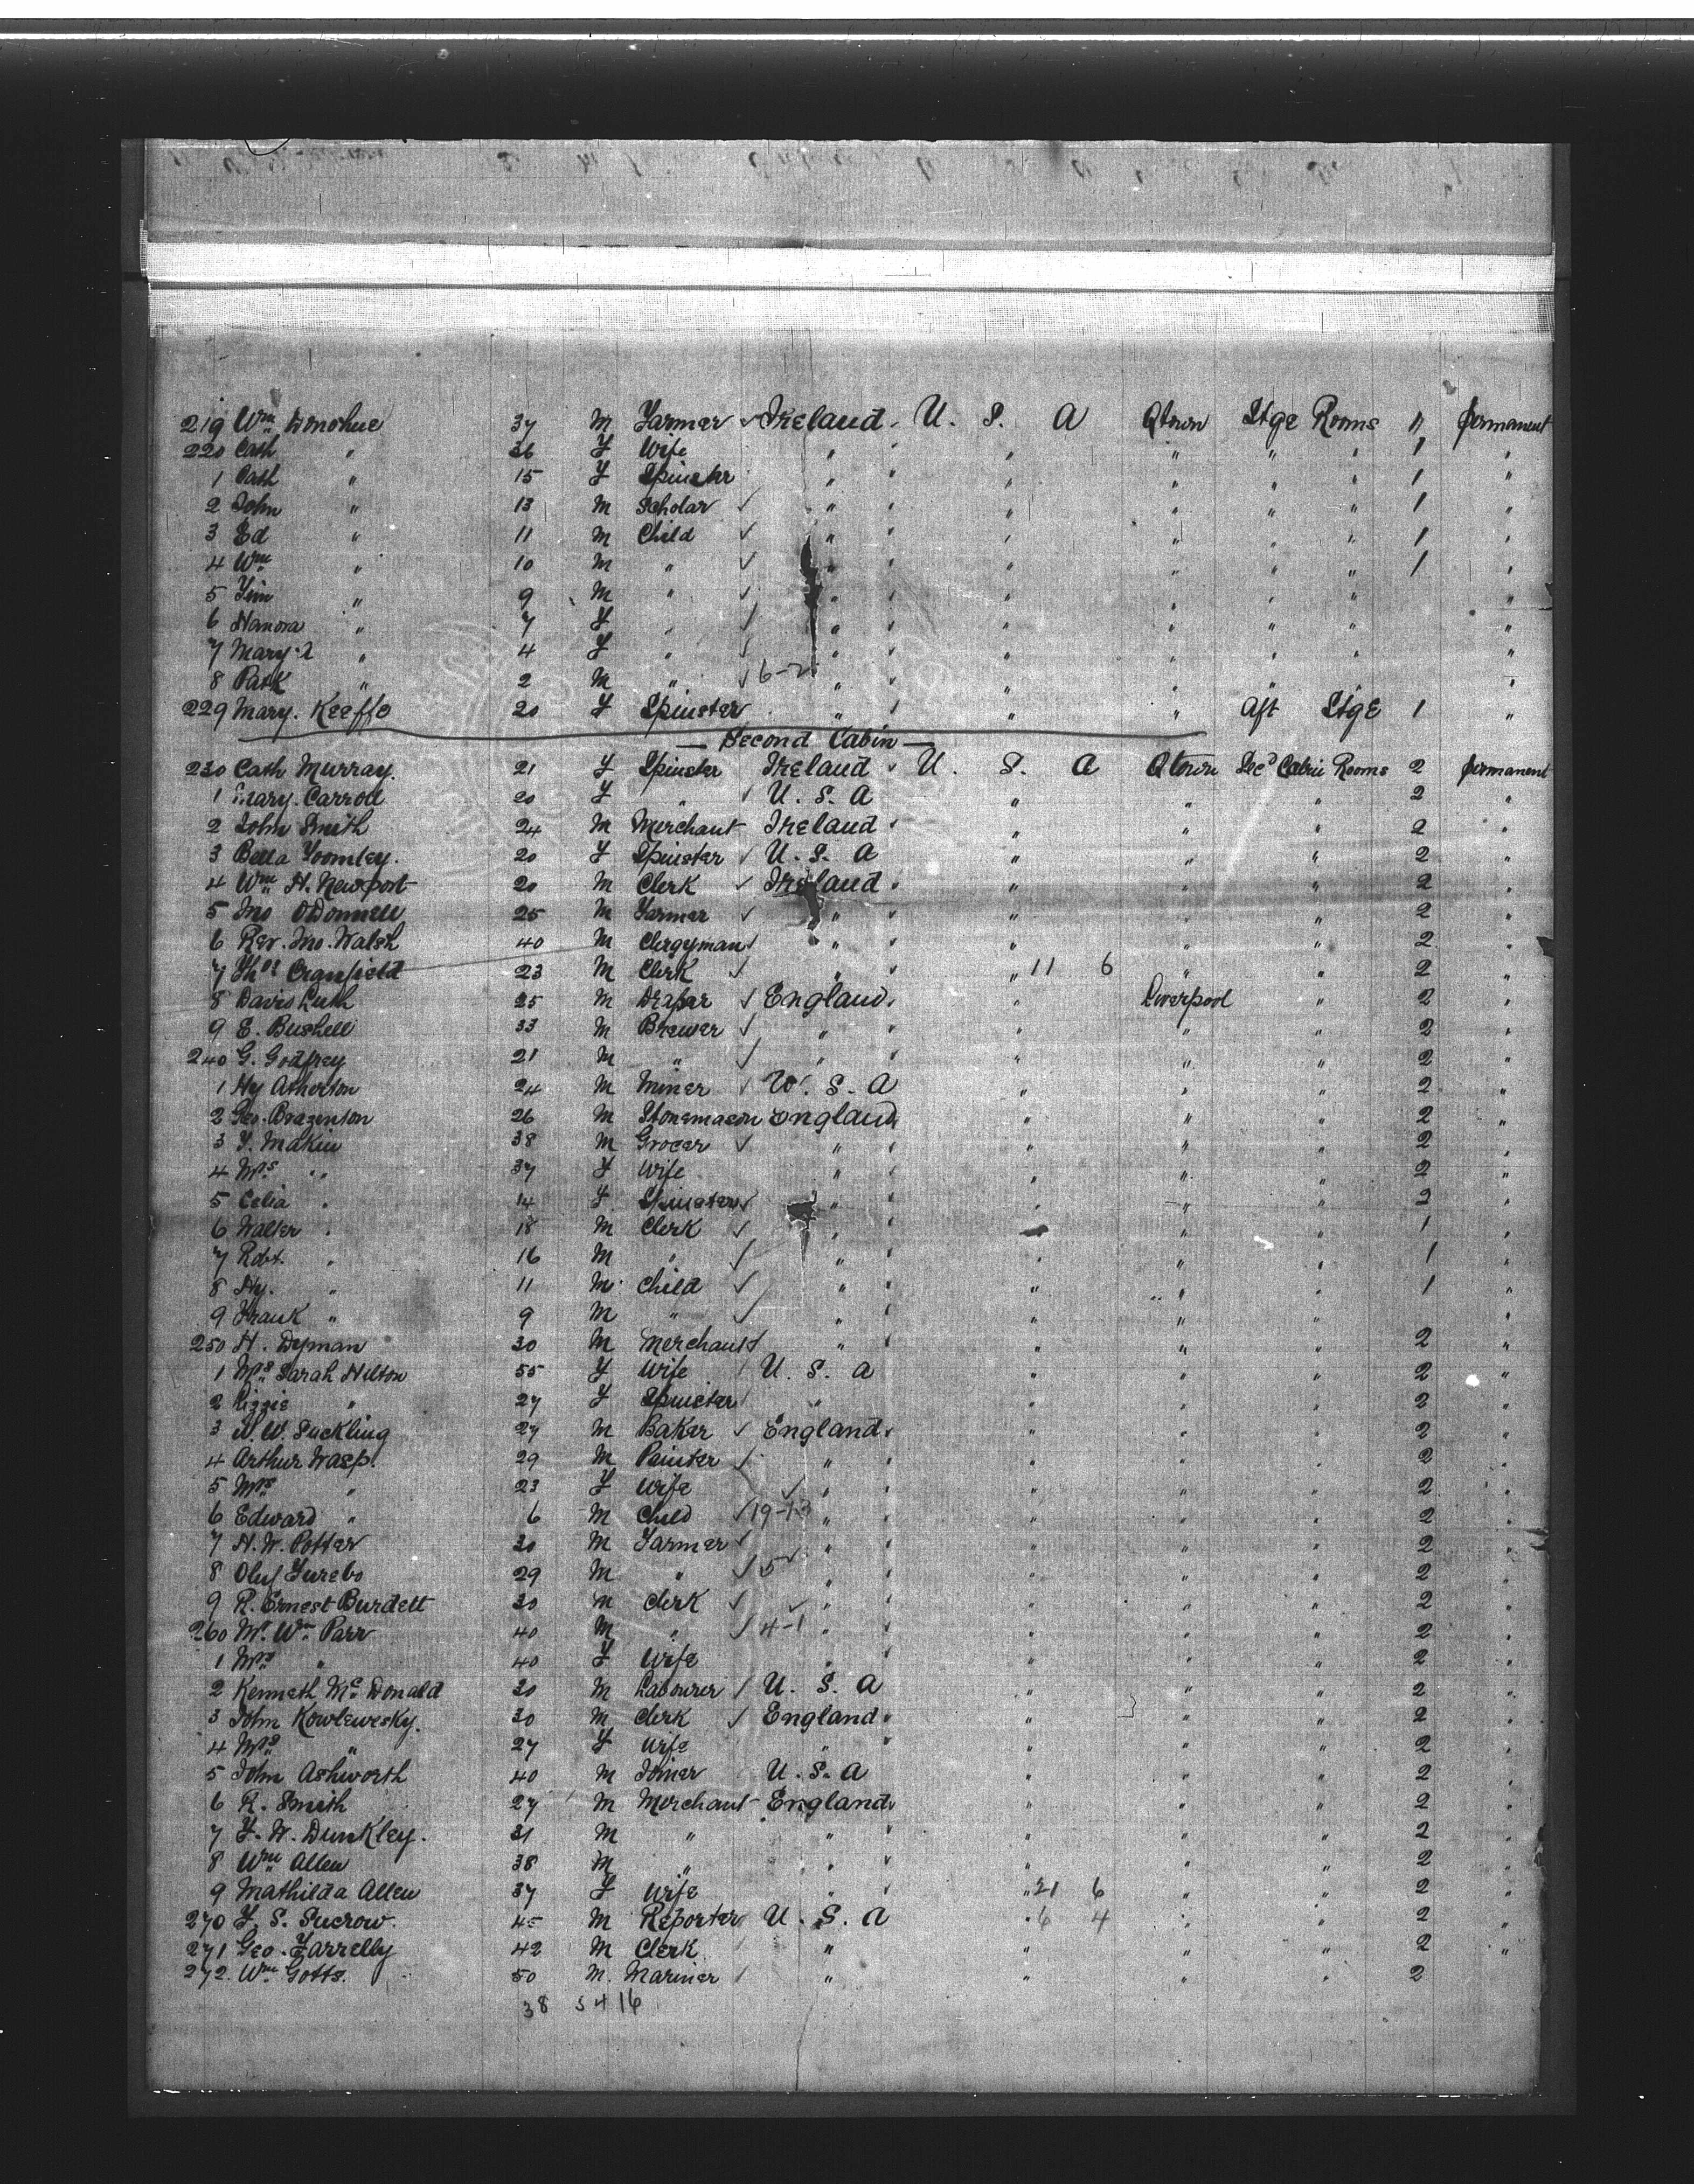 219 Wm Donohue 37 M Farmer ✓ Ireland U. S. A Qtown Stge Rooms 11 permanent
220 Cath " 36 F Wife " " " " " 1 "
1 Cath " 15 F Spinster " " " " " 1 "
2 John " 13 M Scholar ✓ " " " " " 1 "
3 Ed " 11 M Child ✓ " " " " " 1 "
4 Wm " 10 M " ✓ " " " " " 1 "
5 Jim " 9 M " ✓ " " " " " "
6 Hanora " 7 F " ✓ " " " " " "
7 Mary A " 4 F " ✓ " " " " " "
8 Patk " 2 M " ✓ 6-2 " " " " "
229 Mary. Keeffe 20 F Spinster " " " Aft Stge 1 "
— Second Cabin —
230 Cath Murray. 21 F Spinster Ireland U. S. A Qtown Secd Cabin Rooms 2 permanent
1 Mary. Carroll 20 F " ✓ U. S. A " " " 2 "
2 John Smith 24 M Merchant Ireland " " " 2 "
3 Bella Toomley. 20 F Spinster ✓ U. S. A " " " 2 "
4 Wm H. Newport 20 M Clerk ✓ Ireland " " " 2 "
5 Jno ODonnell 25 M Farmer ✓ " " " " 2 "
6 Rev. Jno. Walsh 40 M Clergyman ✓ " " " " 2 "
7 Thos Cranfield 23 M Clerk ✓ " " 11 6 " " 2 "
8 Davis Luth 25 M Draper ✓ England " Liverpool " 2 "
9 E. Bushell 33 M Brewer ✓ " " " " 2 "
240 G. Godfrey 21 M " ✓ " " " " 2 "
1 Hy Atherton 24 M Miner ✓ U. S. A " " " 2 "
2 Geo. Brazenton 26 M Stonemason England " " " 2 "
3 F. Makin 38 M Grocer ✓ " " " " 2 "
4 Mrs " 37 F Wife " " " " 2 "
5 Celia " 14 F Spinster ✓ " " " 2 "
6 Walter " 18 M Clerk ✓ " " " 1 "
7 Robt. " 16 M " ✓ " " " " 1 "
8 Hy. " 11 M Child ✓ " " " " 1 "
9 Frank " 9 M " ✓ " " " " "
250 H. Dyman 30 M Merchant ✓ " " " " 2 "
1 Mrs Sarah Hilton 55 F Wife U. S. A " " " 2 "
2 Lizzie " 27 F Spinster " " " " 2 "
3 W. W. Suckling 27 M Baker ✓ England " " " 2 "
4 Arthur Wasp. 29 M Painter ✓ " " " " 2 "
5 Mrs " 23 F Wife ✓ " " " " 2 "
6 Edward " 6 M Child ✓ 19-13 " " " " 2 "
7 H. W. Potter 30 M Farmer ✓ " " " " 2 "
8 Oluf Furebo 29 M " ✓ 5 " " " " 2 "
9 R. Ernest Burdett 30 M Clerk ✓ " " " " 2 "
260 Mr Wm Parr 40 M " ✓ 4-1 " " " " 2 "
1 Mrs " 40 F Wife " " " " 2 "
2 Kenneth Mc Donald 30 M Labourer U. S. A " " " 2 "
3 John Kowlewesky. 30 M Clerk ✓ England " " " 2 "
4 Mrs " 27 F Wife " " " " 2 "
5 John Ashworth 40 M Joiner U. S. A " " " 2 "
6 R. Smith 27 M Merchant England " " " 2 "
7 F. W. Dunkley. 31 M " " " " " 2 "
8 Wm Allen 38 M " " " " " 2 "
9 Mathilda Allen 37 F Wife " " 21 6 " " 2 "
270 F. S. Sucrow. 45 M Reporter U. S. A " 6 4 " " 2 "
271 Geo. Farrelly 42 M Clerk " " " " 2 "
272. Wm Gotts. 50 M. Mariner " " " " 2
38 5 4 16